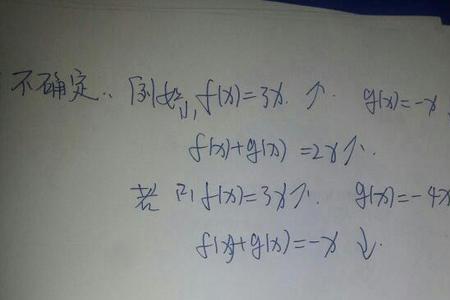 不确定.. 例如(1) f(x)=3x. ↑. g(x)=-x
f(x)+g(x)=2x↑.
若(2) f(x)=3x↑. g(x)=-4x
f(x)+g(x)=-x ↓.